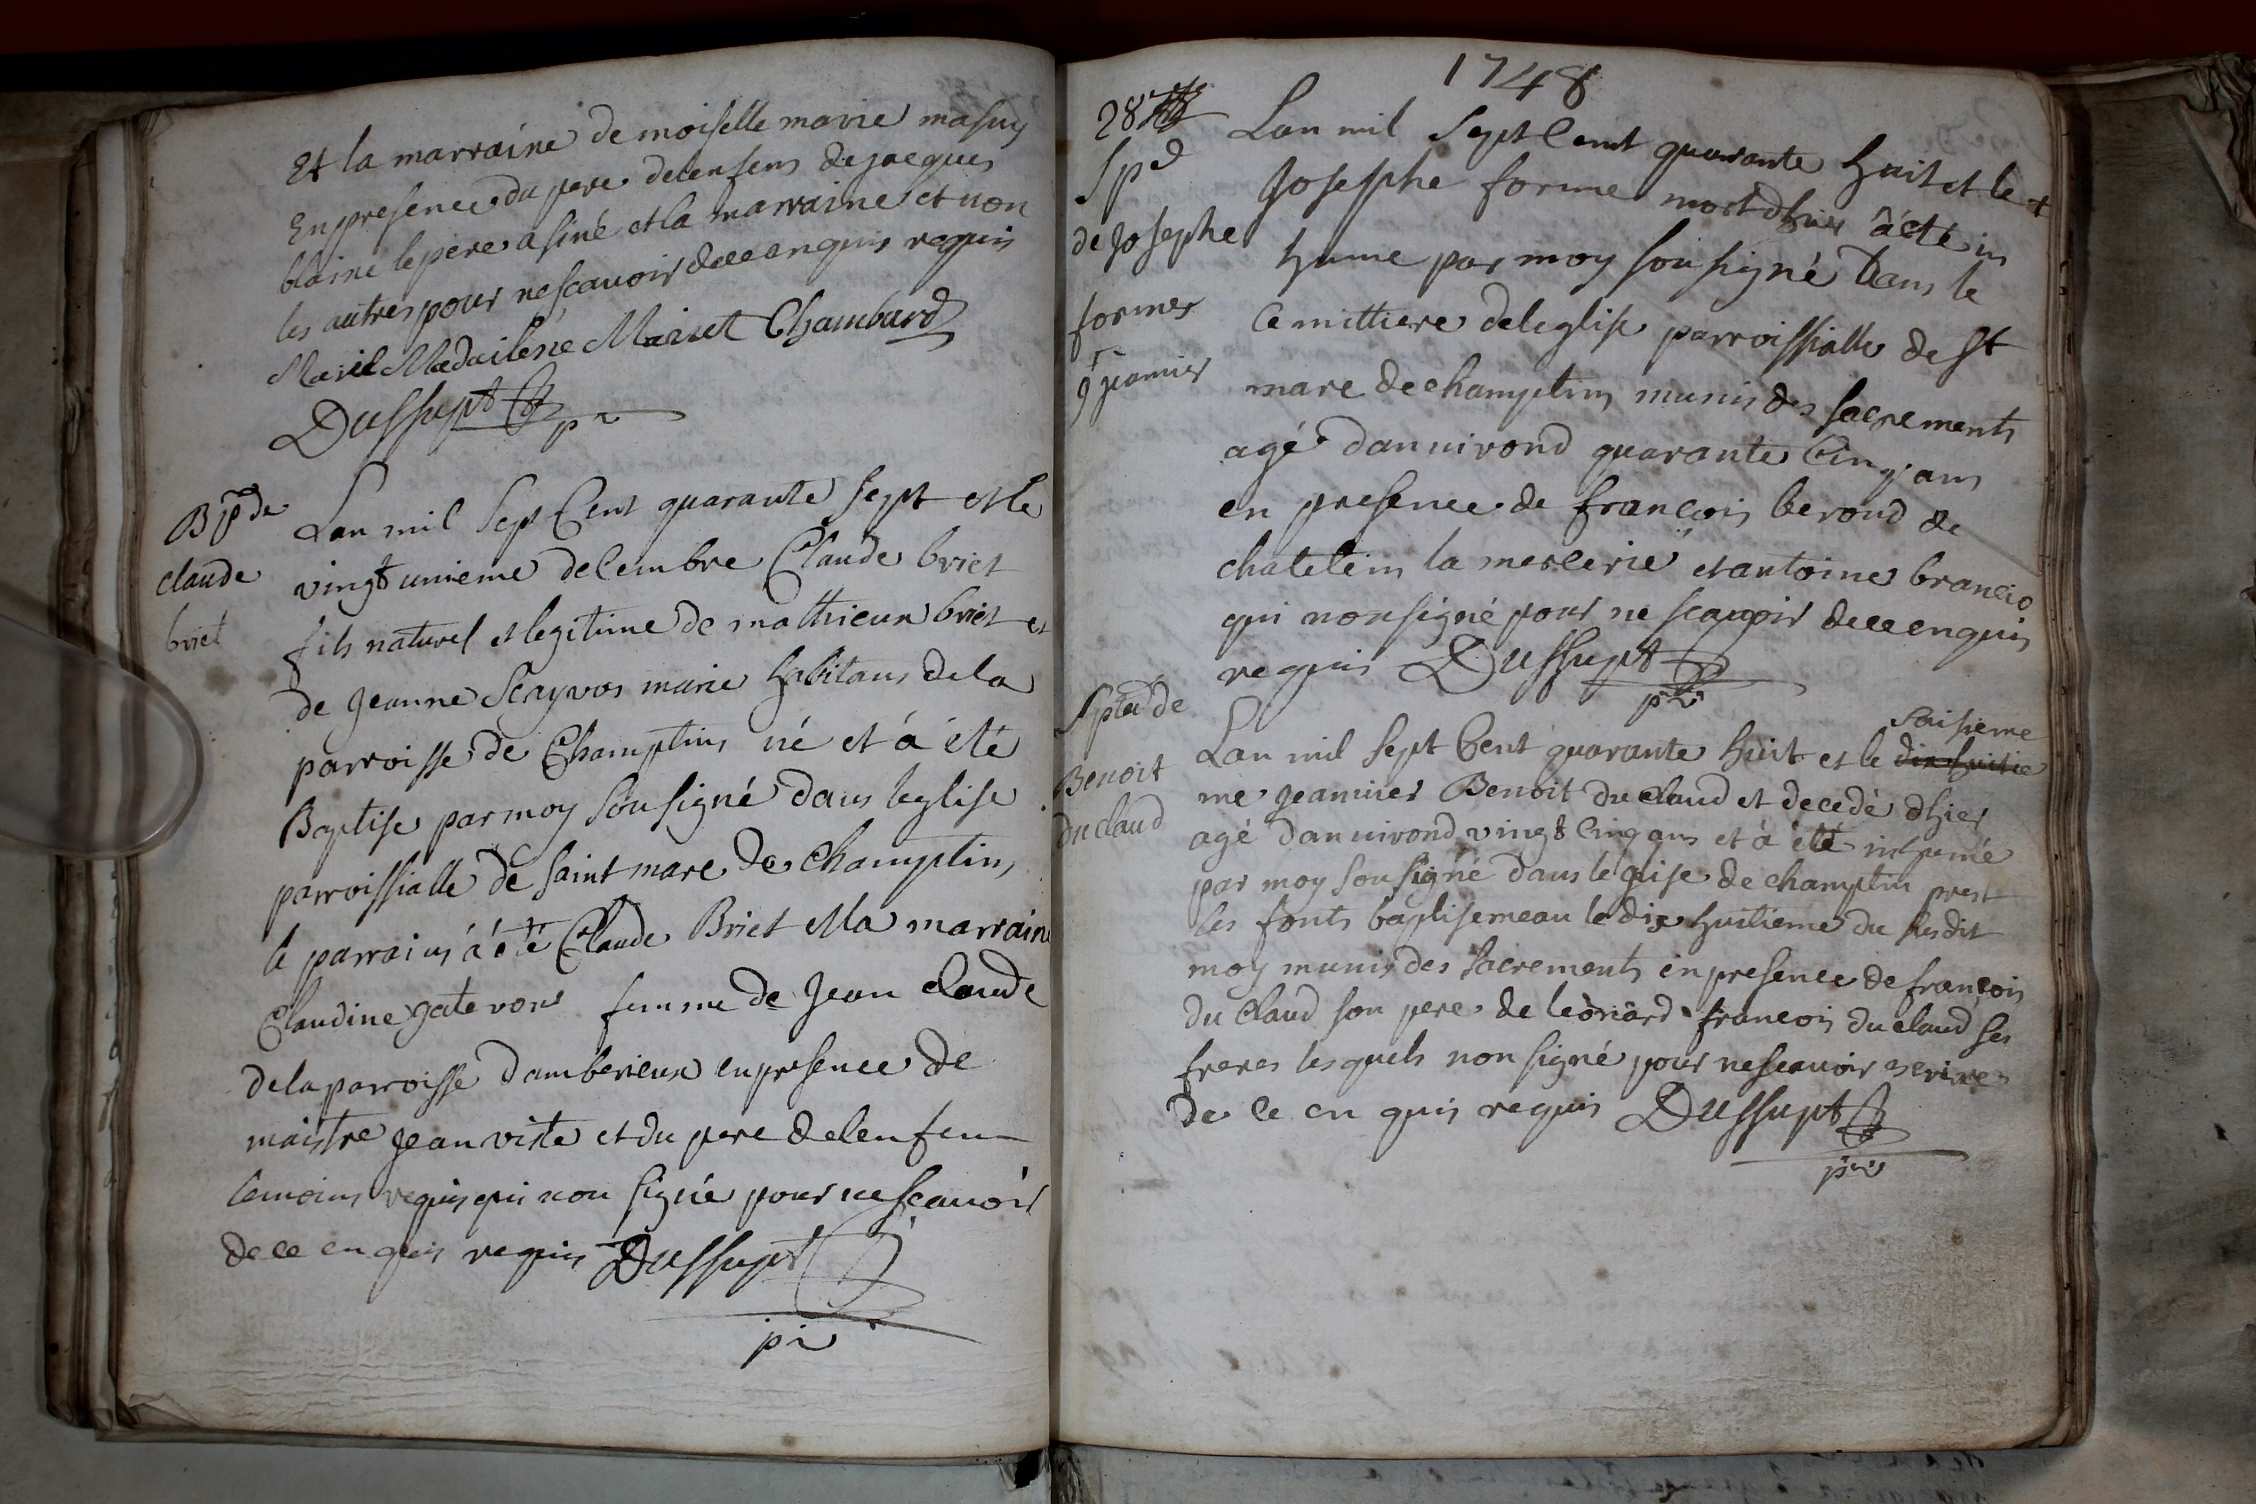 Et la marraine de moiselle marie masuy
En presence du pere delenfens de jacques
blaine le pere a siné et la marraine et non
les autres pour ne scavoir dece enquis requis
Marie Madailene Mairet Chambard
Dussupt
pr
Bp de
claude
briet
Lan mil Sept Cent quarante sept et le
vingt unieme decembre Claude briet
fils naturel et legitime de mathieux briet et
de jeanne marie habitans de la
parroisse de Champtins né et á èté
Baptise par moy Sousigné dans leglise
parroissialle de saint marc de Champtins
le parrains á èté Claude Briet et la marraine
Claudine gatevons femme de Jean Claude
de la parroisse damberieux en presence de
maistre jean viste et du pere de lenfens
temoins requis qui non signé pour ne scavoir
de ce en quis requis Dussupt
pr
1748
28
Sp
de Josephe
formes
9 janvier
Lan mil Sept Cent quarante huit et le +
Josephe forme mort dhier â èté in
hume par moy sousigné Dans le
Cemittiere deleglise parroissialle de St
marc de champtins munis des sacrements
agé danvirond quarante Cinq ans
en presence de françois berond de
chatelein la mercerie et antoine brancio
qui nonsigné pour ne scavoir dece enquis
requis Dussupt
pr
Spta de
Benoit
du claud
Saisieme
Lan mil sept Cent quarante huit et le dixhuitie
me jeanvier Benoit du Claud et decedé dhier
agé danvirond vingt Cinq ans et à èté inhumé
par moy sousigné dans leglise de champtin prest
les fonts baptisemeau le dix huitieme du susdit
moy munis des Sacrements en presence de françois
du Claud son pere de leonard françois du claud ses
freres lesquels non signé pour ne scavoir escrire
de ce en quis requis Dussupt
pr